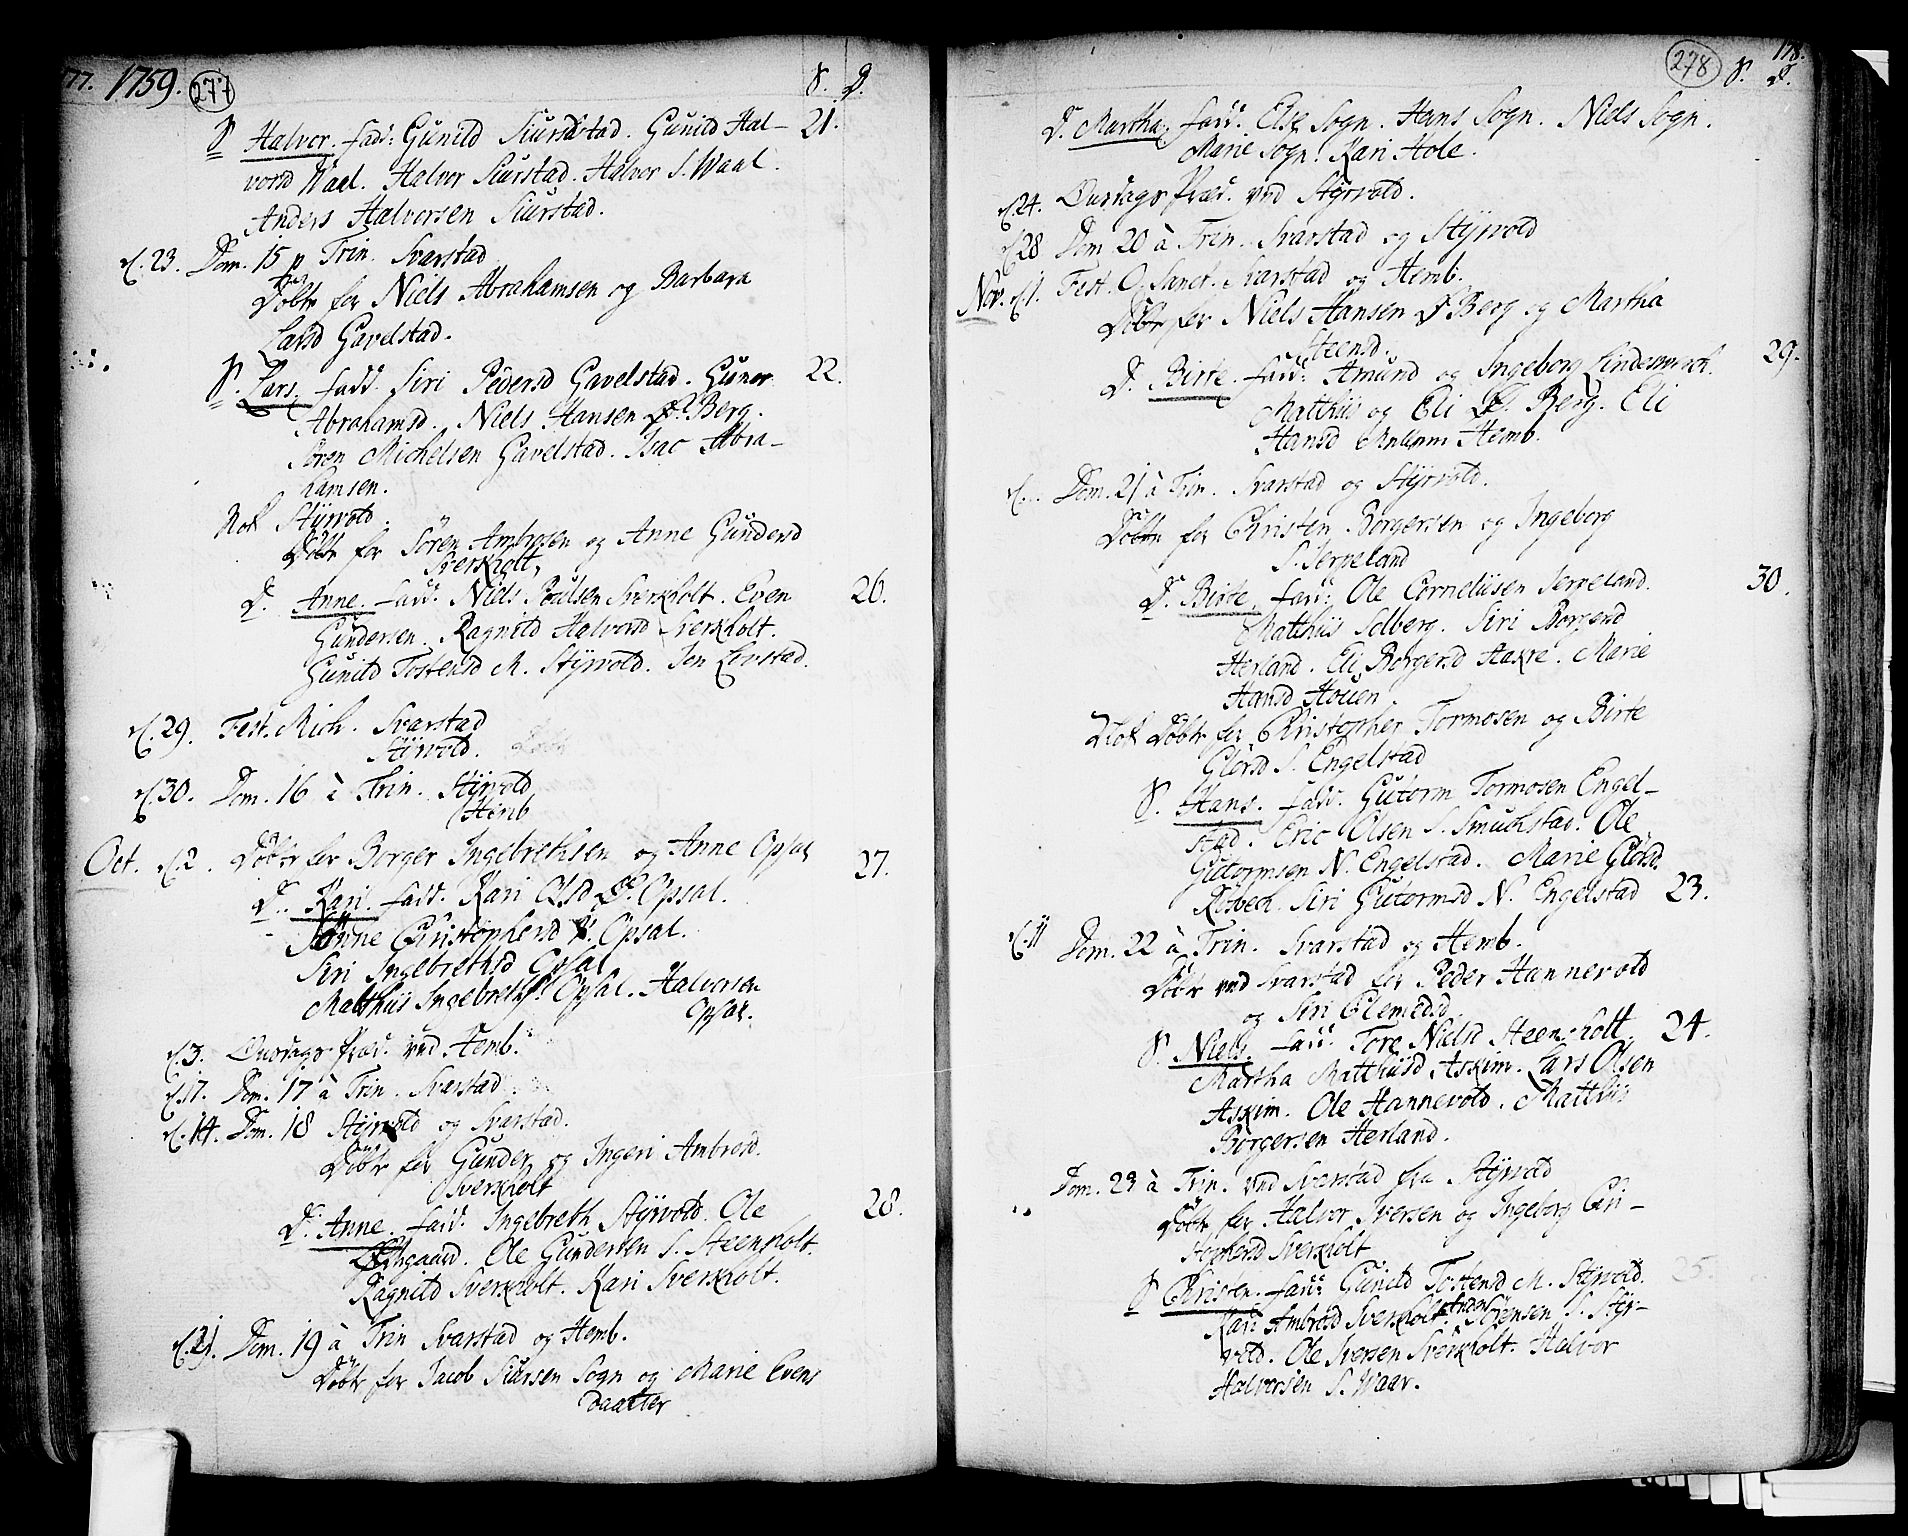 177. 1759. 277 S. D.
S Halvor. fadd: Gunild Siursdstad. Gunild Hal- 21.
vorsd Waal. Halvor Siurstad. Halvor S. Waal.
Anders Halvorsen Siurstad.
d. 23. Dom. 15 p Trin. Svarstad
Döbtr for Niels Abrahamsen og Barbara
Larsd Gavelstad.
S. Lars. fadd. Siri Pedersd Gavelstad. Guner 22.
Abrahamsd. Niels Hansen D. Berg.
Sören Michelsen Gavelstad. Isac Abra-
hamsen.
Nok Styrvold.
Döbtr for Sören Ambrosen og Anne Gundersd
Sverkholt,
D. Anne. fadd. Niels Poulsen Sverkholt. Even 26.
Gundersen. Ragnild Halvorsd Sverkholt.
Gunild Tostensd M. Styrvold. Jon Levstad.
d. 29. Fest. Mich. Svarstad
Styrvold.
d. 30. Dom. 16 à Trin. Styrvold
Hemb
Oct. d. 2. Döbtr for Borger Ingebrethsen og Anne Opsal 27.
D. Kari. fadd. Kari Olsd D. Opsal.
Anne Christophersd V. Opsal.
Siri Ingebrethsd Opsal
Matthiis Ingebreths. Opsal. Halvorsen
Opsal.
d. 3. Onsdags Præd. ved Hemb.
d. 17. Dom. 17 à Trin. Svarstad
d. 14. Dom. 18 Styrvold og Svarstad.
Döbtr for Gunder og Ingeri Ambrosd.
Sverkholt
D. Anne. fadd. Ingebreth Styrvold. Ole 28.
Ole Gundersen S. Steenholt.
Ragnild Sverkholt. Kari Sverkholt.
d. 21. Dom. 19 à Trin Svarstad og Hemb.
Döbtr for Jacob Siursen Sogn og Marie Evens
daatter
278 178. S. D.
D. Martha. fadd. Else Sogn. Hans Sogn. Niels Sogn.
Marie Sogn. Kari Hole.
d. 24. Onsdags Præd. ved Styrvold.
d. 28 Dom 20 à Trin. Svarstad og Styrvold
Nov. d. 1. Fest. O. Sanct. Svarstad og Hemb.
Döbtr for Niels Hansen D Berg og Martha
Steensd.
D. Birte. fadd. Amund og Ingeborg Lindesmarck. 29.
Matthiis og Eli D. Berg. Eli
Hansd Mellem Hemb.
d... Dom. 21 à Trin. Svarstad og Styrvold.
Döbtr for Christen Borgersen og Ingeborg
S. Jerpeland
D. Birte. fadd: Ole Corneliisen Jerpeland. 30.
Matthiis Solberg. Siri Borgersd
Herland. Eli Borgersd Haxre. Marie
Hansd Houen.
Nok Döbtr for Christopher Tormosen og Birte
Glorsd S. Engelstad
S. Hans. fadd. Gutorm Tormosen Engel-
stad. Eric Olsen S. Smuchstad. Ole
Gutormsen N. Engelstad. Marie Glorsd.
Rosbech. Siri Gutormsd N. Engelstad 23.
d. 11 Dom. 22 à Trin. Svarstad og Hemb.
Döbtr ved Svarstad for Peder Hannevold
og Siri Clemedsd
S. Niels. fadd. Tore Nielsd Steensholt 24.
Martha Matthiisd Askim. Lars Olsen
Askim. Ole Hannevold. Matthiis
Borgersen Herland.
Dom. 23 à Trin. ved Svarstad fra Styrvold
Döbtr for Halvor Iversen og Ingeborg Chri-
stophersd Sverkholt
S Christen. fadd: Gunild Tostensd M. Styrvold. 25.
Kari Ambrosd Sverkholt. Sörensen S. Styr-
vold. Ole Iversen Sverkholt. Halvor
Halvorsen S. Waal.